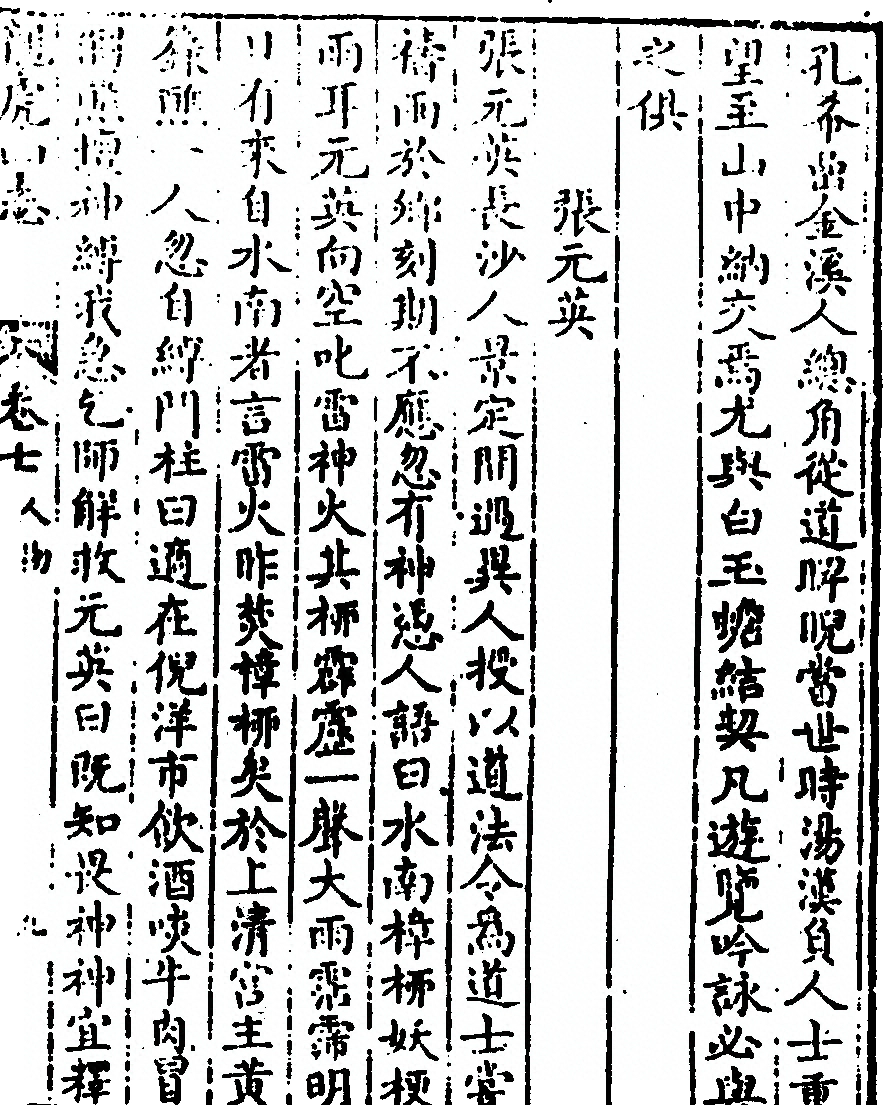 孔希出金溪人總角從道睥睨當世時湯漢負人士重
望至山中納交焉尤與白玉蟾結契凡遊覽吟詠必與
之俱
張元英
張元英長沙人景定間遇異人授以道法令爲道士嘗
禱雨於鄉刻期不應忽有神憑人語曰水南樟柳妖梗
雨耳元英向空叱雷神火其柳霹靂一聲大雨霈霈明
日有來自水南者言雷火昨焚樟柳矣於上清宮主黃
籙醮一人忽自縛門柱曰適在倪洋市飲酒啖牛肉冒
醮壇神縛我急乞師解救元英曰既知畏神神宜釋
龍虎山志
卷七 人物
九